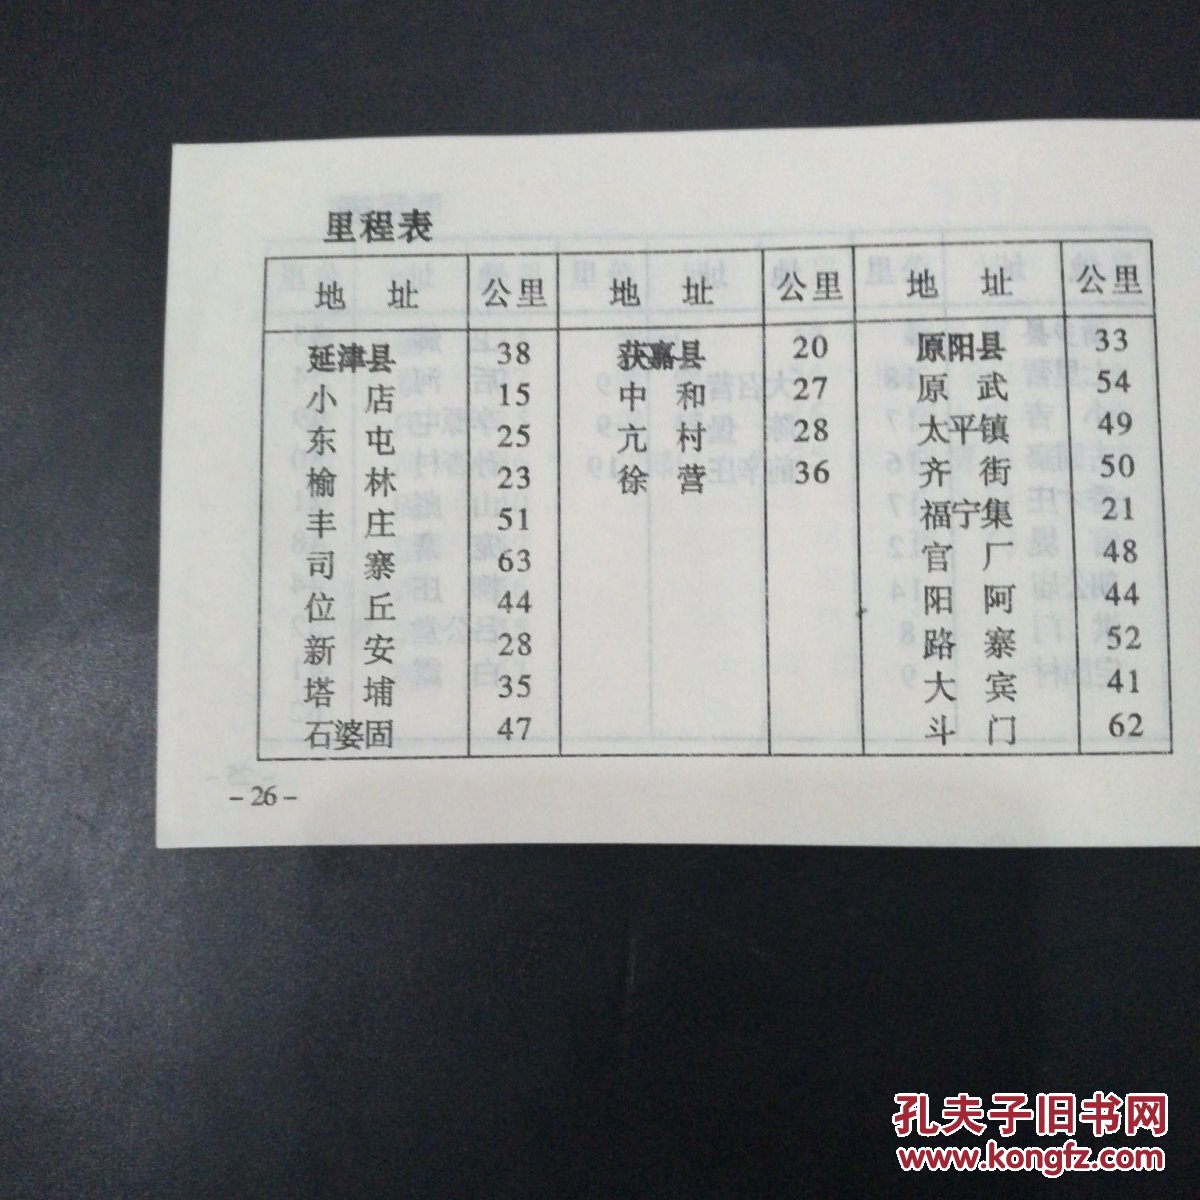 里程表
地 址 公里 地 址 公里 地 址 公里
延津县 38 获嘉县 20 原阳县 33
小 店 15 中 和 27 原 武 54
东 屯 25 亢 村 28 太平镇 49
榆 林 23 徐 营 36 齐 街 50
丰 庄 51 福宁集 21
司 寨 63 官 厂 48
位 丘 44 阳 阿 44
新 安 28 路 寨 52
塔 埔 35 大 宾 41
石婆固 47 斗 门 62
-26-
孔夫子旧书网
www.kongfz.com